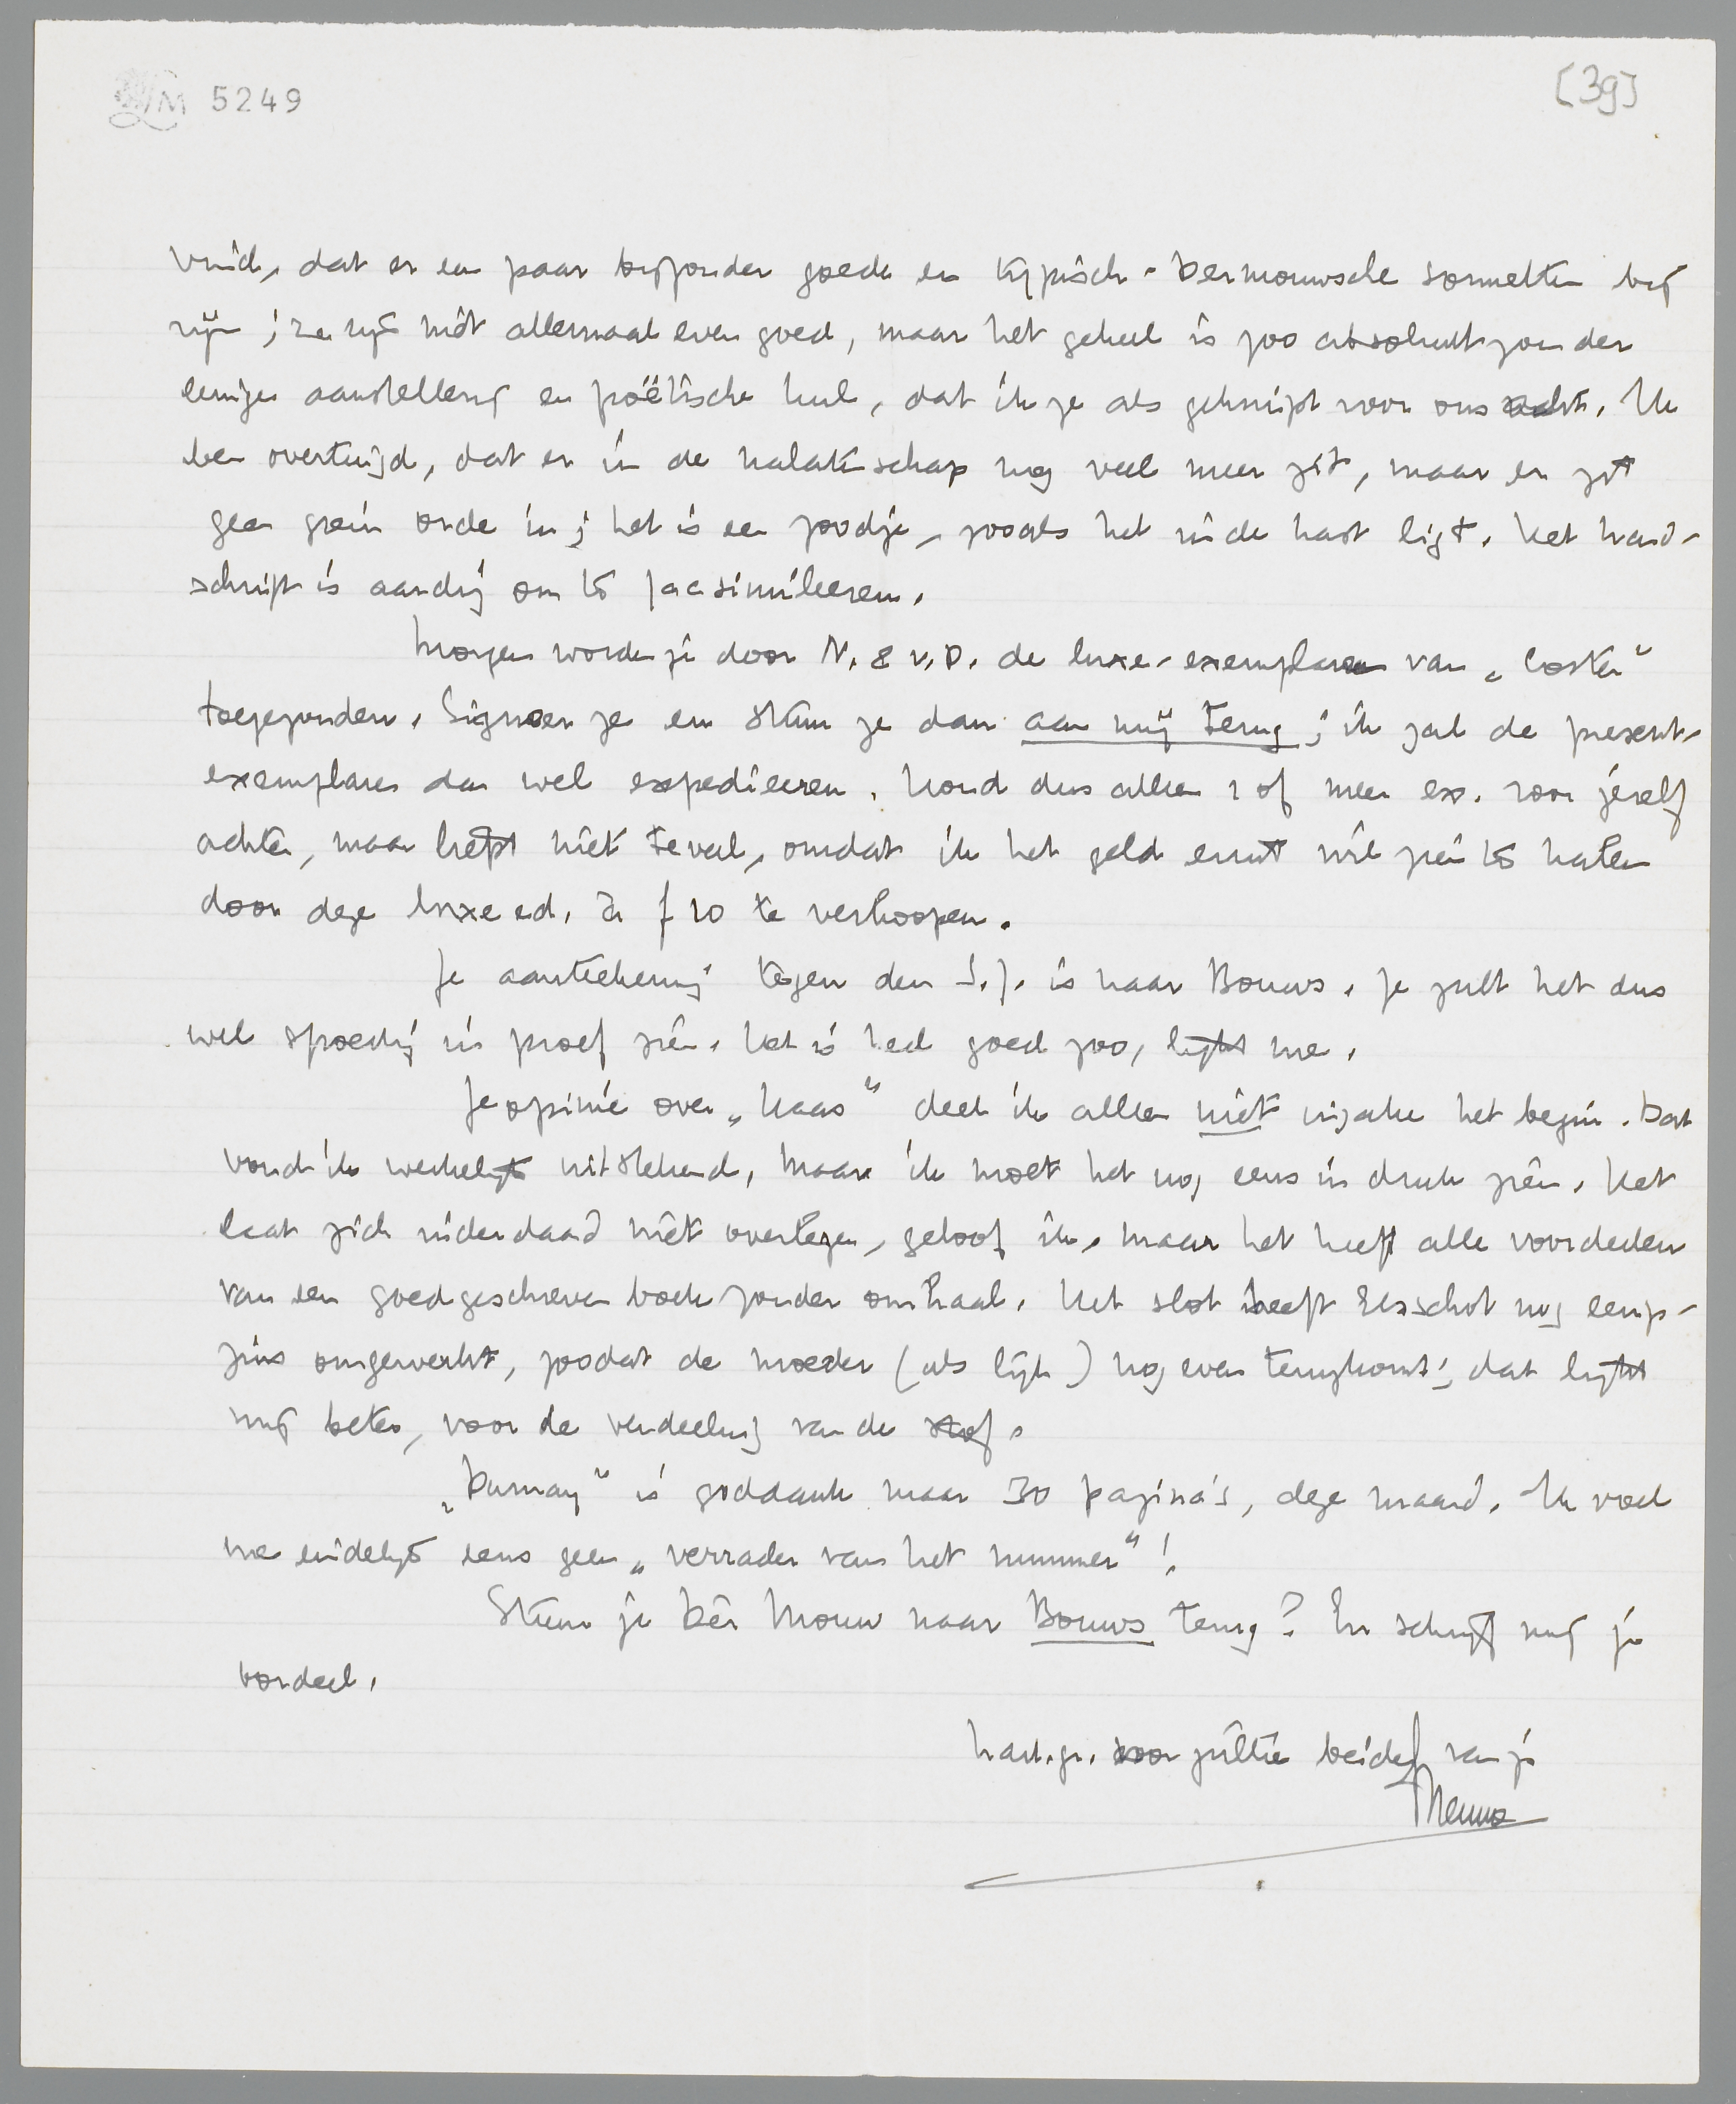 LM 5249
[39]
vind, dat er een paar bijzonder goede en typisch-Dermouwsche sonnetten bij
zijn; ze zijn niet allemaal even goed, maar het geheel is zoo absoluut zonder
eenige aanstellerij en poëtische lul, dat ik ze als geknipt voor ons acht. Ik
ben overtuigd, dat er in de nalatenschap nog veel meer zit, maar er zit
geen grein orde in; het is een zoodje, zooals het in de kast ligt. Het hand-
schrift is aardig om te facsimileeren.
Morgen worden je door N. & v. D. de luxe-exemplaren van „Coster"
toegezonden. Signeer ze en stuur ze dan aan mij terug; ik zal de present-
exemplaren dan wel expedieeren. Houd dus alleen 1 of meer ex. voor jezelf
achter, maar liefst niet teveel, omdat ik het geld eruit wil zien te halen
door deze luxe ed. à f 10 te verkoopen.
Je aanteekening tegen den S.J. is naar Bouws. Je zult het dus
wel spoedig in proef zien. Het is heel goed zoo, lijkt me.
Je opinie over „Kaas" deel ik alleen niet inzake het begin. Dat
vond ik werkelijk uitstekend, maar ik moet het nog eens in druk zien. Het
laat zich inderdaad niet overlezen, geloof ik, maar het heeft alle voordeelen
van een goedgeschreven boek zonder omhaal. Het slot heeft Elsschot nog eenigs-
zins omgewerkt, zoodat de moeder (als lijk) nog even terugkomt; dat lijkt
mij beter, voor de verdeeling van de stof.
„Dumay" is goddank maar 30 pagina's, deze maand. Ik voel
me eindelijk eens geen „verrader van het nummer"!
Stuur je Dèr Mouw naar Bouws terug? En schrijf mij je
oordeel.
Hart. gr. voor jullie beiden van je
Menno